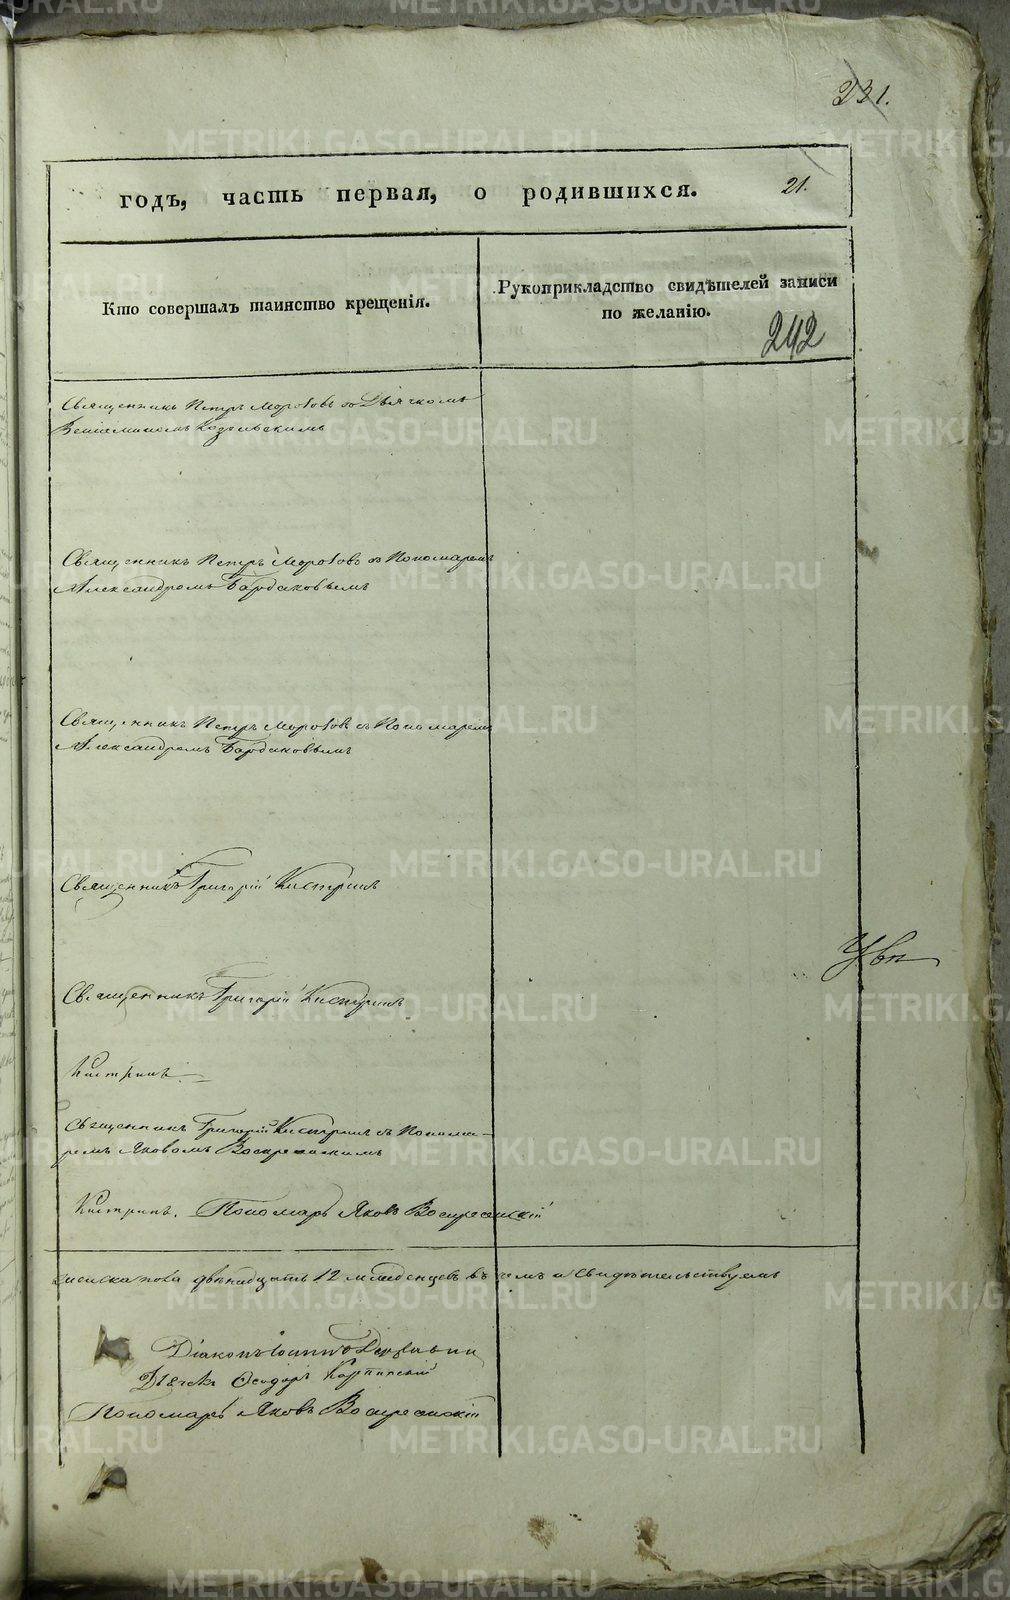 231.
годъ, часть первая, о родившихся. 21.
Кто совершалъ таинство крещенія.
Рукоприкладство свидѣтелей записи
по желанію.
242
Священникъ Петръ Морозовъ со Дьячкомъ
Веніаминомъ Козельскимъ
Священникъ Петръ Морозовъ съ Пономаремъ
Александромъ Бардаковымъ
Священникъ Петръ Морозовъ съ Пономаремъ
Александромъ Бардаковымъ
Священникъ Григорій Кистринъ
Священникъ Григорій Кистринъ
Кистринъ
Священникъ Григорій Кистринъ съ Понома-
ремъ Яковомъ Воскресенскимъ
Кистринъ. Пономарь Яковъ Воскресенскій
двѣнадцать 12 младенцевъ въ чемъ и свидѣтельствуемъ
Діаконъ Іоаннъ
Дьячекъ Ѳеодоръ Карпинскій
Пономарь Яковъ Воскресенскій
METRIKI.GASO-URAL.RU